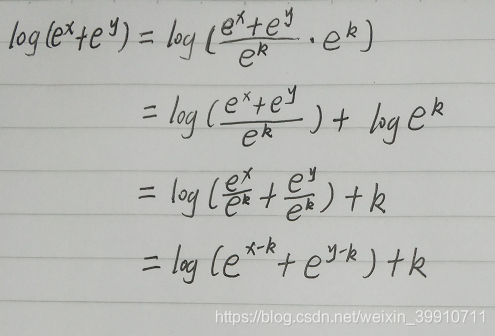 log(e^x+e^y) = log(\frac{e^x+e^y}{e^k} · e^k)
= log(\frac{e^x+e^y}{e^k}) + log e^k
= log(\frac{e^x}{e^k} + \frac{e^y}{e^k}) + k
= log(e^{x-k} + e^{y-k}) + k
https://blog.csdn.net/weixin_39910711